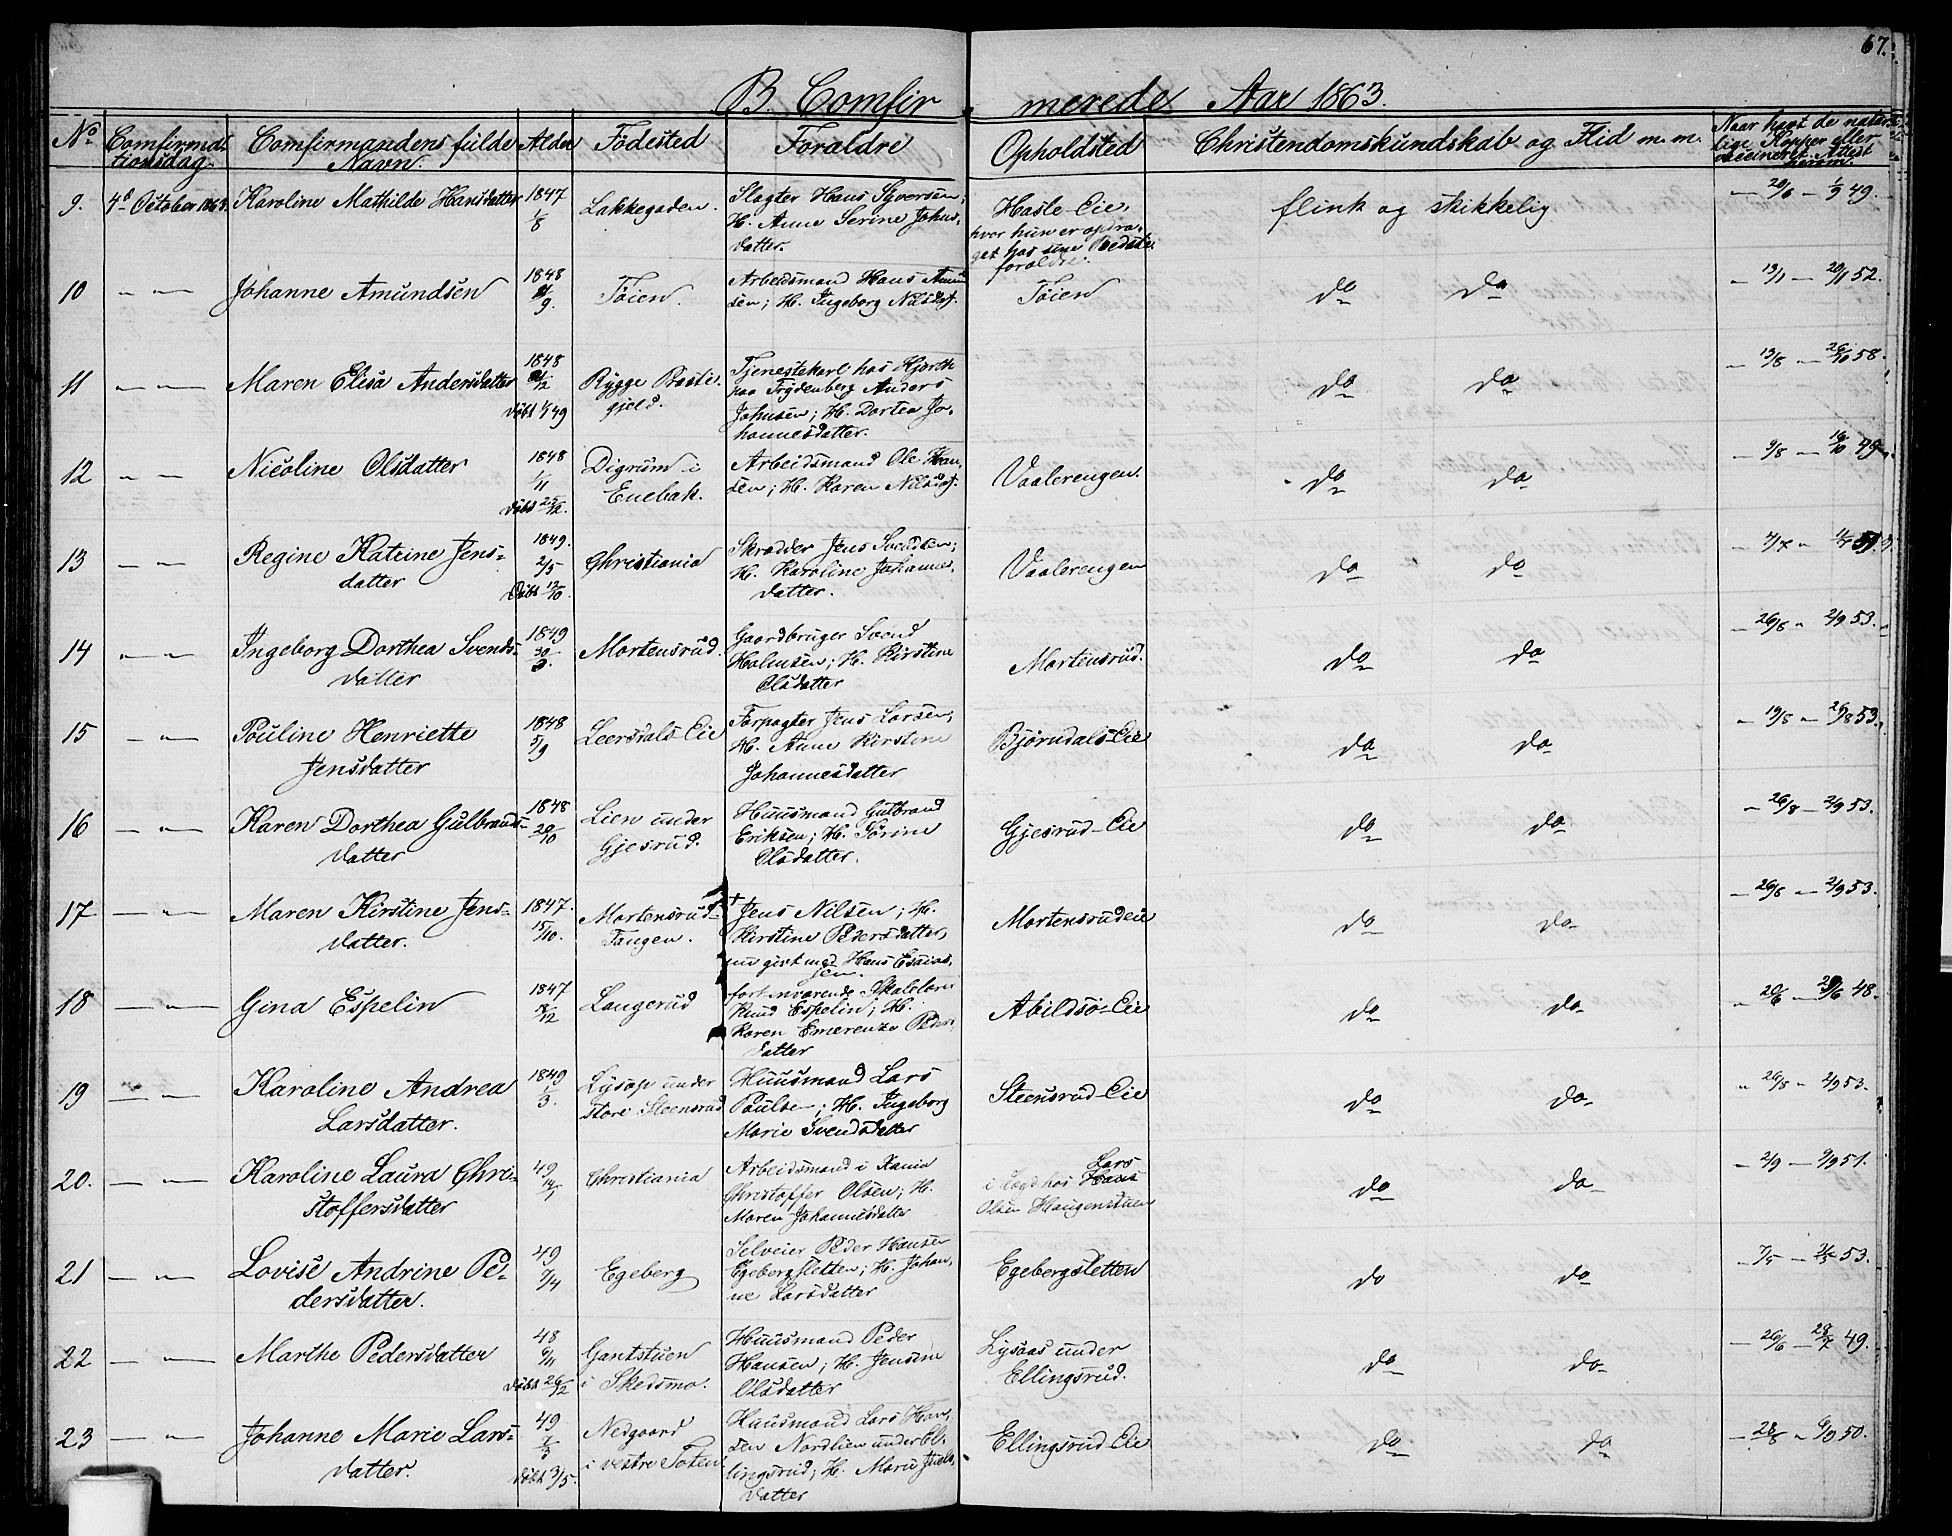 67.
B. Comfirmerede Aar 1863.
No Comfirmationsdag. Comfirmandens fulde Navn. Alder Födested Forældre Opholdsted Christendomskundskab og Flid m. m. Naar havt de naturlige Kopper eller vaccineret. Attest herom.
9. 4d October 1863. Karoline Mathilde Hansdatter 1847 1/8 Lakkegaden. Slagter Hans Syversen; H. Anne Serine Johnsdatter. Hasle Eie, hvor hun er opdraget hos sine Bedsteforældre. flink og skikkelig — 20/8 — 1/9 49.
10 — " — Johanne Amundsen 1848 /9. Töien. Arbeidsmand Hans Amundsen; H. Ingeborg Nilsdat. Töien do do — 13/1 — 20/1 52.
11 — " — Maren Elisa Andersdatter 1848 /12 döbt 1/1 49 Rygge Præstegjeld. Tjenestekarl hos Hjorth paa Frydenberg Anders Johnsen; H. Dortea Johannesdatter. do do — 13/8 — 26/10 58.
12 — " — Nicoline Olsdatter 1848 1/11 döbt 25/12. Digrum i Enebak. Arbeidsmand Ole Hansen; H. Karen Nilsdat. Vaalerengen. do do — 9/8 — 16/10 49.
13 — " — Regine Katrine Jensdatter 1849. 2/5 Döbt 13/10. Christiania Skrædder Jens Svendsen; H. Karoline Johannesdatter. Vaalerengen do do
14 — " — Ingeborg Dorthea Svendsdatter 1849 30/3. Mortensrud. Gaardbruger Svend Halmsen; H. Kirstine Olsdatter Mortensrud. do do — 26/8 — 2/9 53.
15 — " — Pouline Henriette Jensdatter 1848 5/9 Leersdals-Eie Forpagter Jens Larsen; H. Anne Kirstine Johannesdatter Björndals-Eie do do — 19/8 — 26/8 53.
16 — " — Karen Dorthea Gulbrandsdatter 1848 20/10 Lien under Gjesrud. Huusmand Gulbrand Eriksen; H. Sörine Olsdatter. Gjesrud-Eie do do — 26/8 — 2/9 53.
17 — " — Maren Kirstine Jensdatter. 1847. 15/10. Mortensrud-Tangen. † Jens Nilsen; H. Kirstine Pedersdatter, nu givt med Hans Esaiassen. Mortensrudeie do do — 26/8 — 2/9 53.
18 — " — Gina Espelin 1847 /12 Langerud forhenværende Skolelærer Knud Espelin; H. Karen Emerentze Pedersdatter Abildsö-Eie do do — 20/6 — /6 48.
19 — " — Karoline Andrea Larsdatter. 1849 1/3. Lysop under store Steensrud Huusmand Lars Poulsen; H. Ingeborg Marie Svendsdatter Steensrud-Eie do do " 26/8 " 2/9 53.
20. — " — Karoline Laura Christoffersdatter 49 14/1 Christiania Arbeidsmand i Xania Christoffer Olsen; H. Maren Johannesdatter i Logd hos Hans Lars Olsen Haugenstuen do do — 2/9 — 9/9 51.
21 — " — Lovise Andrine Pedersdatter. 49 7/4 Egeberg Selveier Peder Hansen Egebergsletten; H. Johanne Larsdatter Egebergsletten do do — 7/5 — 53.
22 — " — Marthe Pedersdatter 48 6/11 döbt 26/12 Gantstuen i Skedsmo. Huusmand Peder Hansen; H. Jensine Olsdatter Lysaas under Ellingsrud. do do — 26/6 — 29/7 49.
23 — " — Johanne Marie Larsdatter. 49 7/3 döbt 3/5. Nedgaard i vestre Toten Huusmand Lars Hansen Nordlien under Ellingsrud; H. Marie Juelsdatter Ellingsrud Eie do do — 28/8 " 6/9 50.